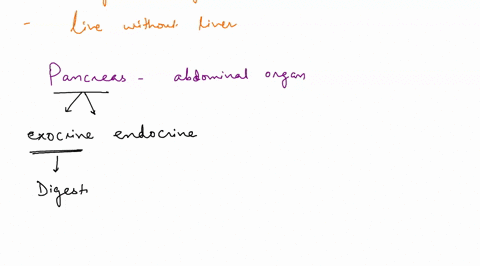 - live without liver
Pancreas - abdominal organ
exocrine endocrine
Digest